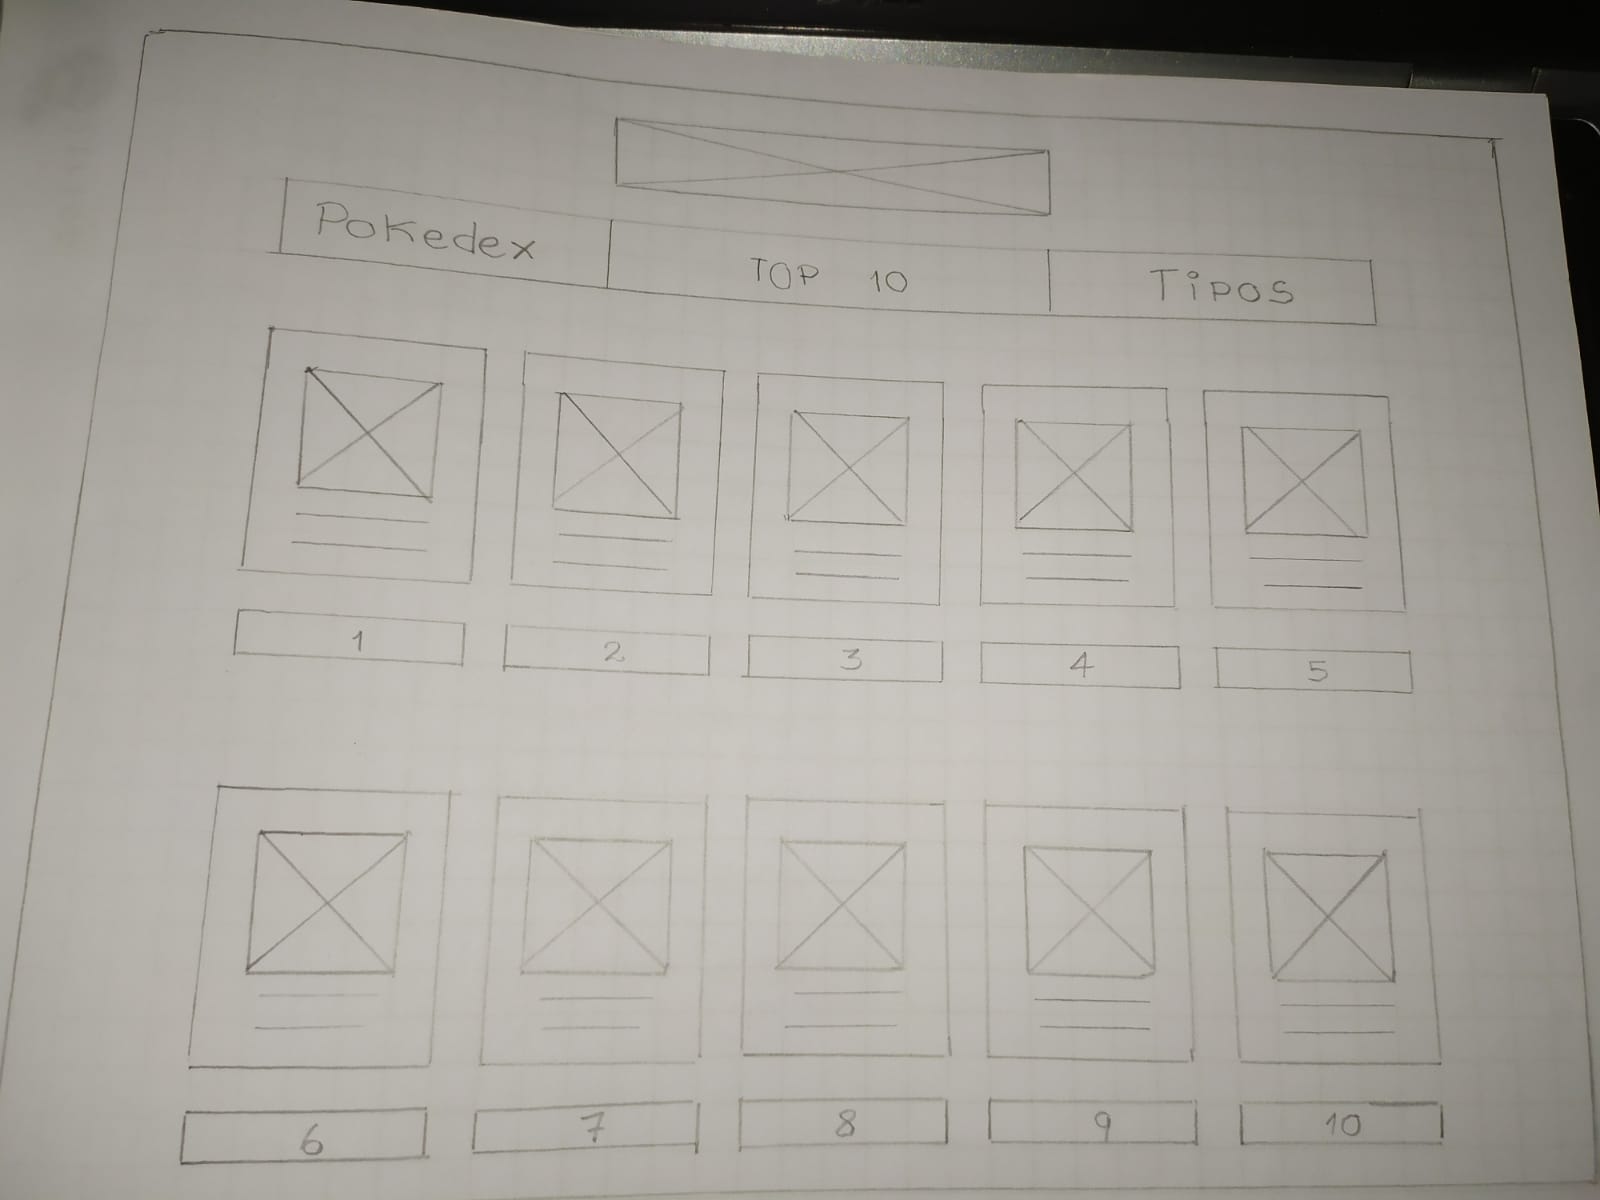 Pokedex TOP 10 Tipos
1 2 3 4 5
6 7 8 9 10